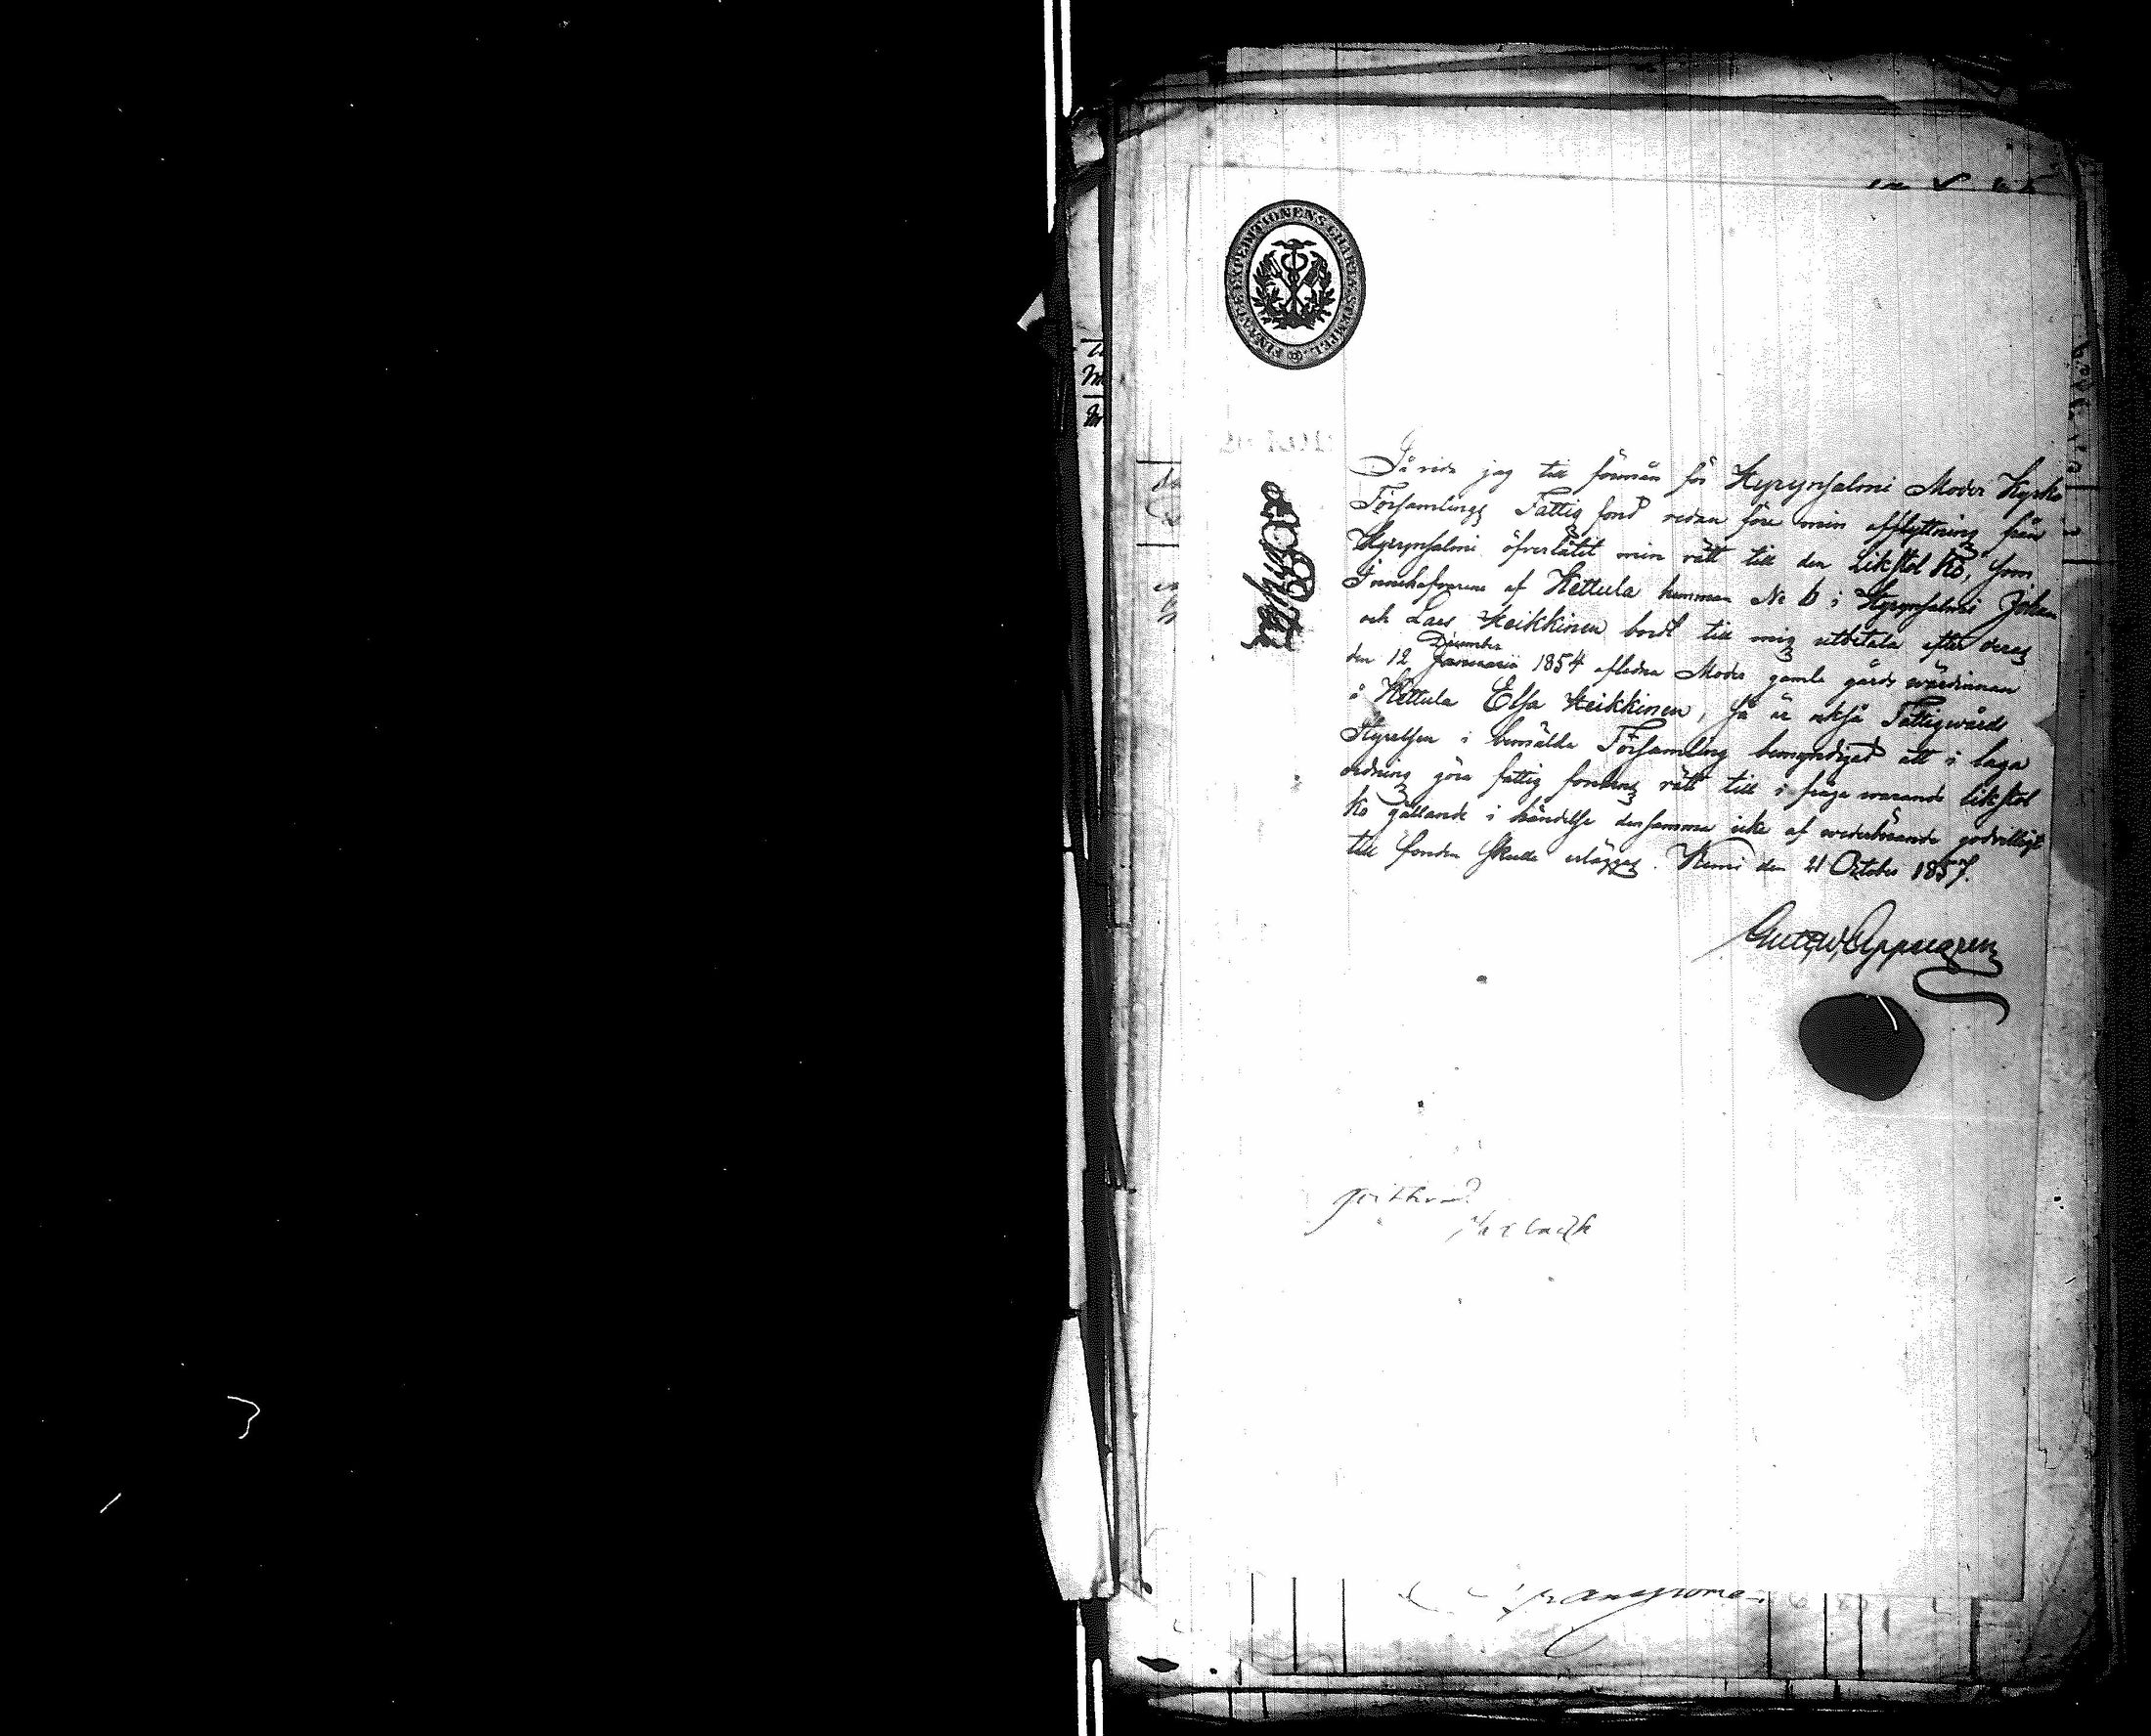 FINANCE EXPEDITIONENS CHARTÆ STEMPEL.
Då jag till förmån för Hyrynsalmi Moder Kyrko
Församlings Fattig fond redan före min afflyttning från
Hyrynsalmi öfverlåtit min rätt till den Likstol Ko, som
Innehafvarene af Kettula hemman No 6 i Hyrynsalmi Johan
och Lars Heikkinen bordt till mig utbetala efter deras
den 12 December 1854 aflidna Moder gamla gårds wärdinnan
å Kettula Elsa Heikkinen, så är också Fattigwårds
Styrelsen i bemälda Församling bemyndigad att i laga
ordning göra fattig fondens rätt till i fråga warande likstol
ko gällande i händelse densamma icke af wederbörande godwilligt
till fonden skulle erläggas. Kemi den 21 October 1857.
Gust. W. Appelgren